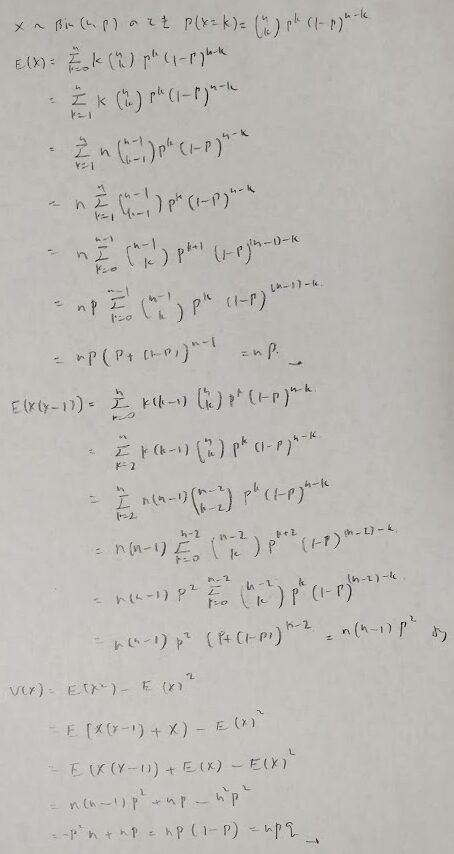 X ~ Bin(n, p) のとき P(X=k) = \binom{n}{k} p^k (1-p)^{n-k}
E(X) = \sum_{k=0}^{n} k \binom{n}{k} p^k (1-p)^{n-k}
= \sum_{k=1}^{n} k \binom{n}{k} p^k (1-p)^{n-k}
= \sum_{k=1}^{n} n \binom{n-1}{k-1} p^k (1-p)^{n-k}
= n \sum_{k=1}^{n} \binom{n-1}{k-1} p^k (1-p)^{n-k}
= n \sum_{k=0}^{n-1} \binom{n-1}{k} p^{k+1} (1-p)^{(n-1)-k}
= np \sum_{k=0}^{n-1} \binom{n-1}{k} p^k (1-p)^{(n-1)-k}
= np (p + (1-p))^{n-1} = np.
E(X(X-1)) = \sum_{k=0}^{n} k(k-1) \binom{n}{k} p^k (1-p)^{n-k}
= \sum_{k=2}^{n} k(k-1) \binom{n}{k} p^k (1-p)^{n-k}
= \sum_{k=2}^{n} n(n-1) \binom{n-2}{k-2} p^k (1-p)^{n-k}
= n(n-1) \sum_{k=0}^{n-2} \binom{n-2}{k} p^{k+2} (1-p)^{(n-2)-k}
= n(n-1) p^2 \sum_{k=0}^{n-2} \binom{n-2}{k} p^k (1-p)^{(n-2)-k}
= n(n-1) p^2 (p + (1-p))^{n-2} = n(n-1) p^2 より
V(X) = E(X^2) - E(X)^2
= E[X(X-1) + X) - E(X)^2
= E(X(X-1)) + E(X) - E(X)^2
= n(n-1) p^2 + np - n^2 p^2
= -p^2 n + np = np(1-p) = npq